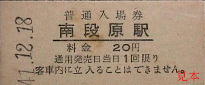 41.12.18
普通入場券
南段原駅
料金 20円
通用発売日当日1回限り
客車内に立入ることはできません。
見本